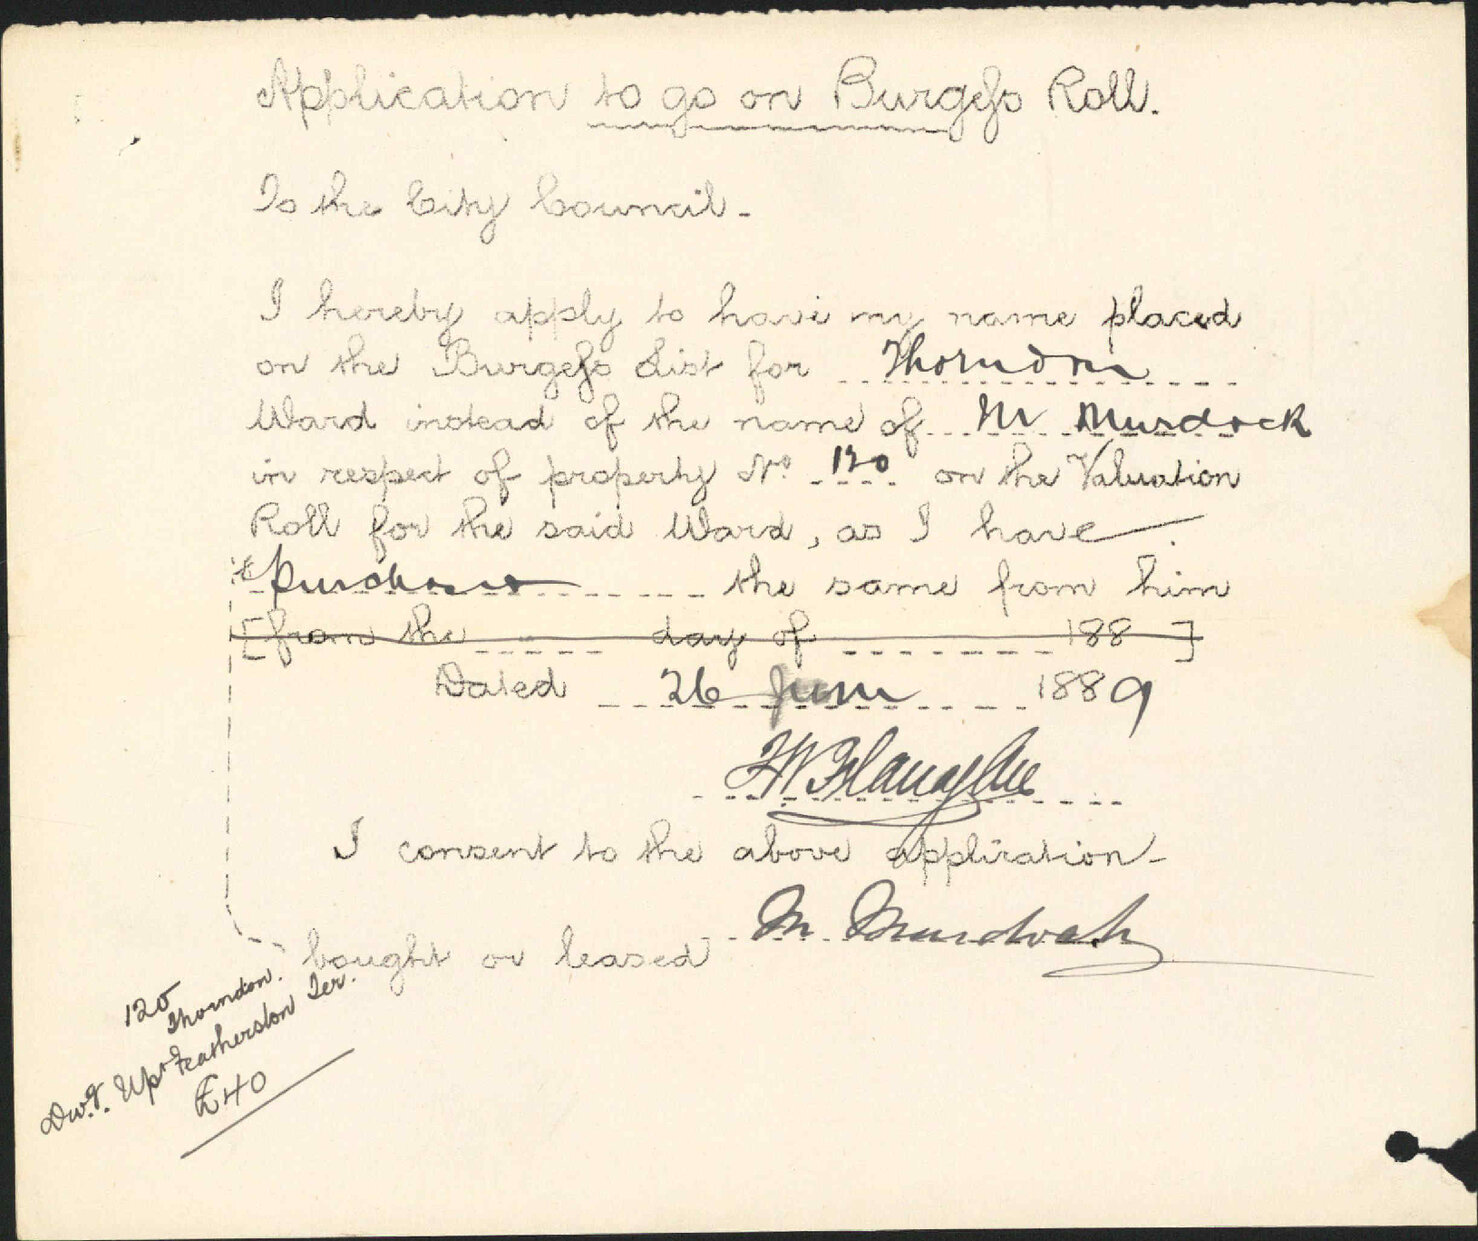 Application to go on Burgess Roll.
To the City Council -
I hereby apply to have my name placed
on the Burgess List for Thorndon
Ward instead of the name of M Murdock
in respect of property No. 120 on the Valuation
Roll for the said Ward, as I have
* purchased the same from him
[from the day of 188 ]
Dated 26 June 1889
I consent to the above application -
M. Murdoch
bought or leased
120
Thorndon.
Dwg. Upr Featherston Ter.
£40